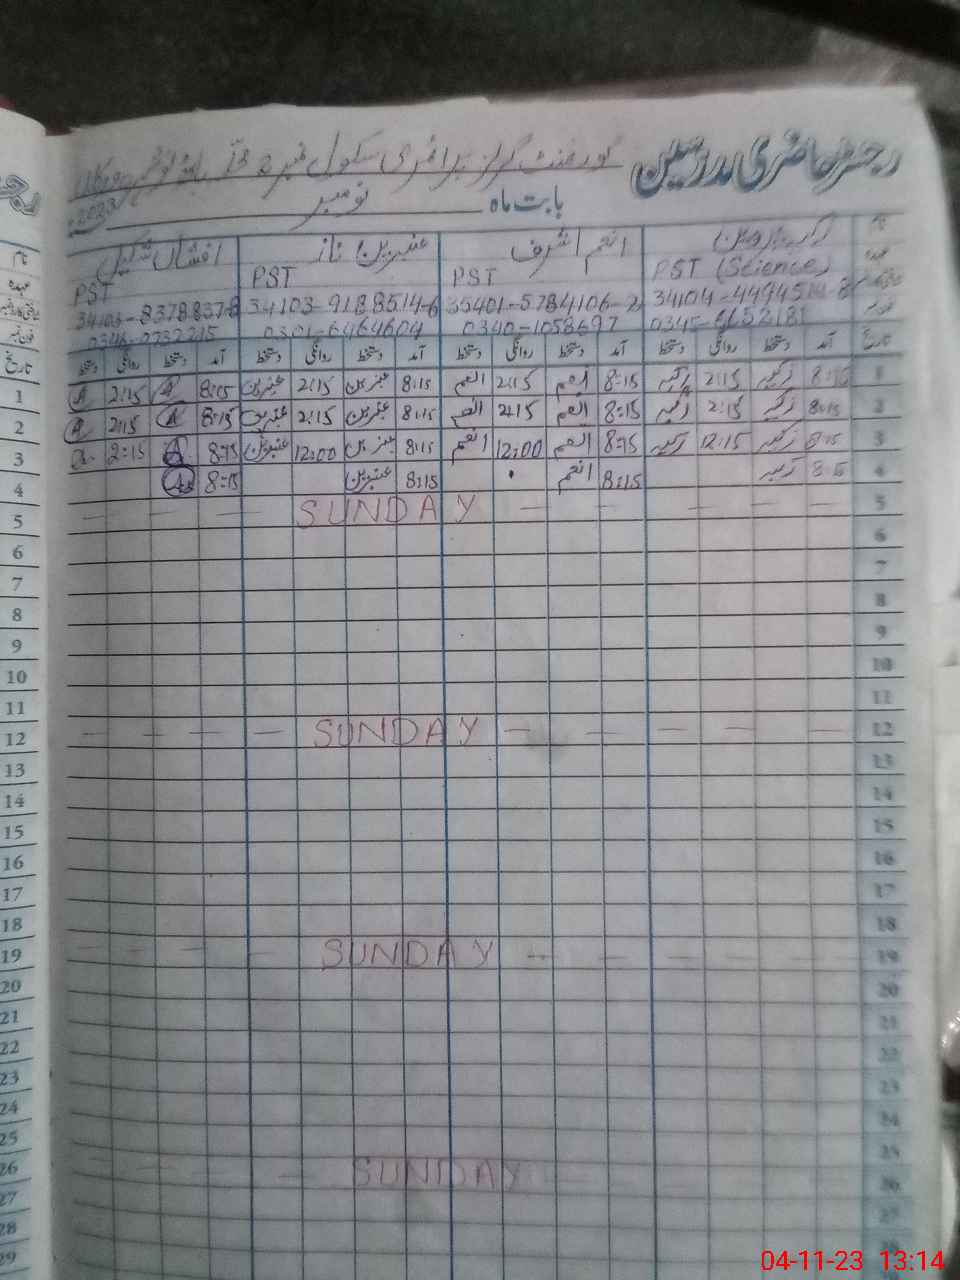 رجسٹر حاضری مدرسین
گورنمنٹ گرلز پرائمری سکول نمبر 2
بابت ماہ نومبر 2023ء
نام انعم اشرف عنبرین ناز افشاں شکیل
عہدہ PST (Science) PST PST PST
34104-4494514-8 35401-5784106-2 34103-9188514-6 34103-8378837-8
فون نمبر 0340-1058697 0301-6464604 0346-0732215
تاریخ آمد دستخط روانگی دستخط آمد دستخط روانگی دستخط آمد دستخط روانگی دستخط آمد دستخط روانگی دستخط تاریخ
1 8:15 2:15 8:15 انعم 2:15 انعم 8:15 عنبرین 2:15 عنبرین 8:15 A 2:15 A 1
2 8:15 2:15 8:15 انعم 2:15 انعم 8:15 عنبرین 2:15 عنبرین 8:15 A 2:15 A 2
3 8:15 12:15 8:15 انعم 12:00 انعم 8:15 عنبرین 12:00 عنبرین 8:15 A 2:15 3
4 8:15 8:15 انعم 8:15 عنبرین 8:15 A 4
5 SUNDAY 5
6 6
7 7
8 8
9 9
10 10
11 11
12 SUNDAY 12
13 13
14 14
15 15
16 16
17 17
18 18
19 SUNDAY 19
20 20
21 21
22 22
23 23
24 24
25 25
26 SUNDAY 26
27 27
28 28
29
04-11-23 13:14